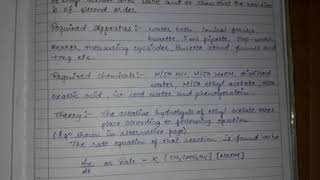 of ethyl acetate with NaOH and to show that the reaction
is of second order.
Required Apparatus:- Water bath, conical flasks,
burette, 5 ml pipette, stop watch,
beaker, measuring cylinder, burette stand, funnel and
tong etc.
Required chemicals:- M/50 HCl, M/50 NaOH, distilled
water, M/50 ethyl acetate,
oxallic acid, ice cold water and phenolphthalein.
Theory:- The alkaline hydrolysis of ethyl acetate takes
place according to following equation
(Eqn shown in alternative page).
The rate equation of that reaction is found to be
dx/dt or rate = K [CH3COOC2H5] [NaOH]